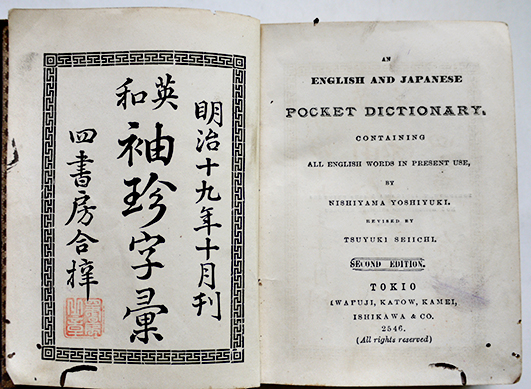 明治十九年十月刊
英和
袖珍字彙
四書房合梓
AN
ENGLISH AND JAPANESE
POCKET DICTIONARY.
CONTAINING
ALL ENGLISH WORDS IN PRESENT USE,
BY
NISHIYAMA YOSHIYUKI.
REVISED BY
TSUYUKI SEIICHI.
SECOND EDITION.
TOKIO
IWAFUJI, KATOW, KAMEI,
ISHIKAWA & CO.
2546.
(All rights reserved)